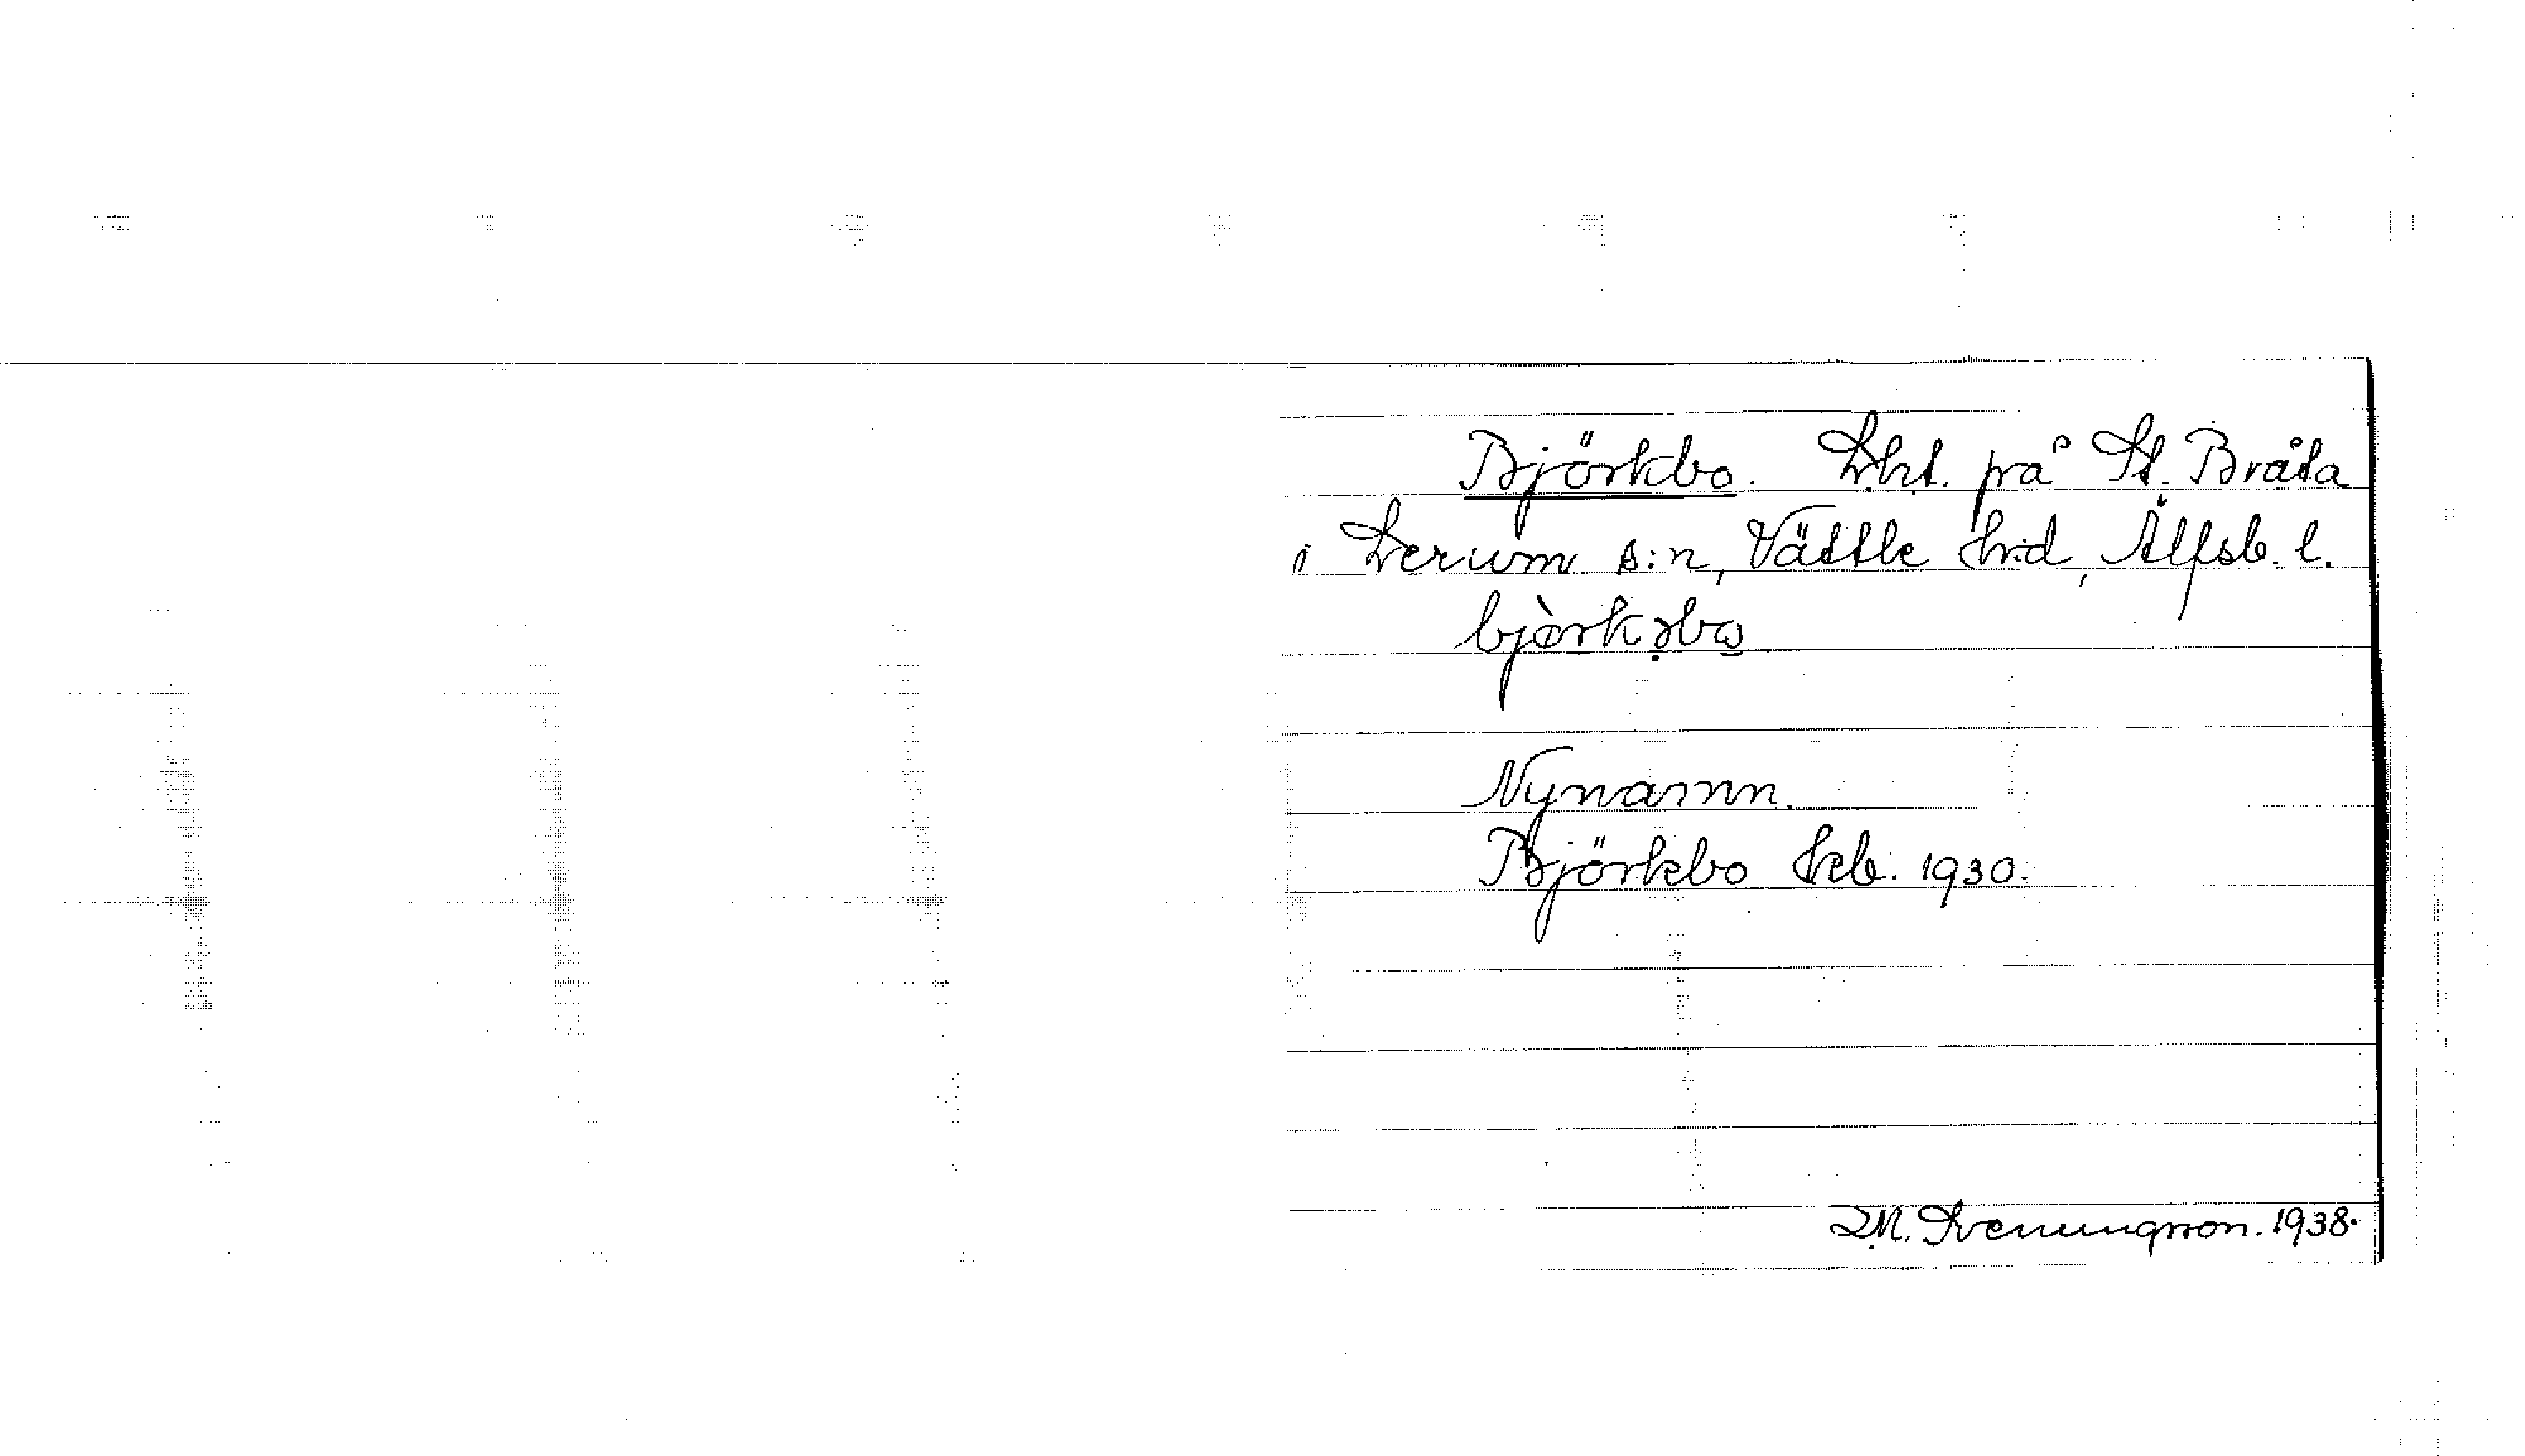 Björkbo. Lht. på St. Bråta
i Lerum s:n, Vättle hd, Älfsb. l.
bjòrkəbω
Nynamn.
Björkbo kb. 1930.
M. Svenungsson. 1938.